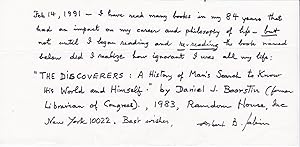 Feb 14, 1991 – I have read many books in my 84 years that
had an impact on my career and philosophy of life – but
not until I began reading and re-reading the book named
below did I realize how ignorant I was all my life:
"THE DISCOVERERS: A History of Man's Search to Know
His World and Himself." by Daniel J. Boorstin (former
Librarian of Congress)., 1983, Random House, Inc
New York 10022. Best wishes, Albert B. Sabin